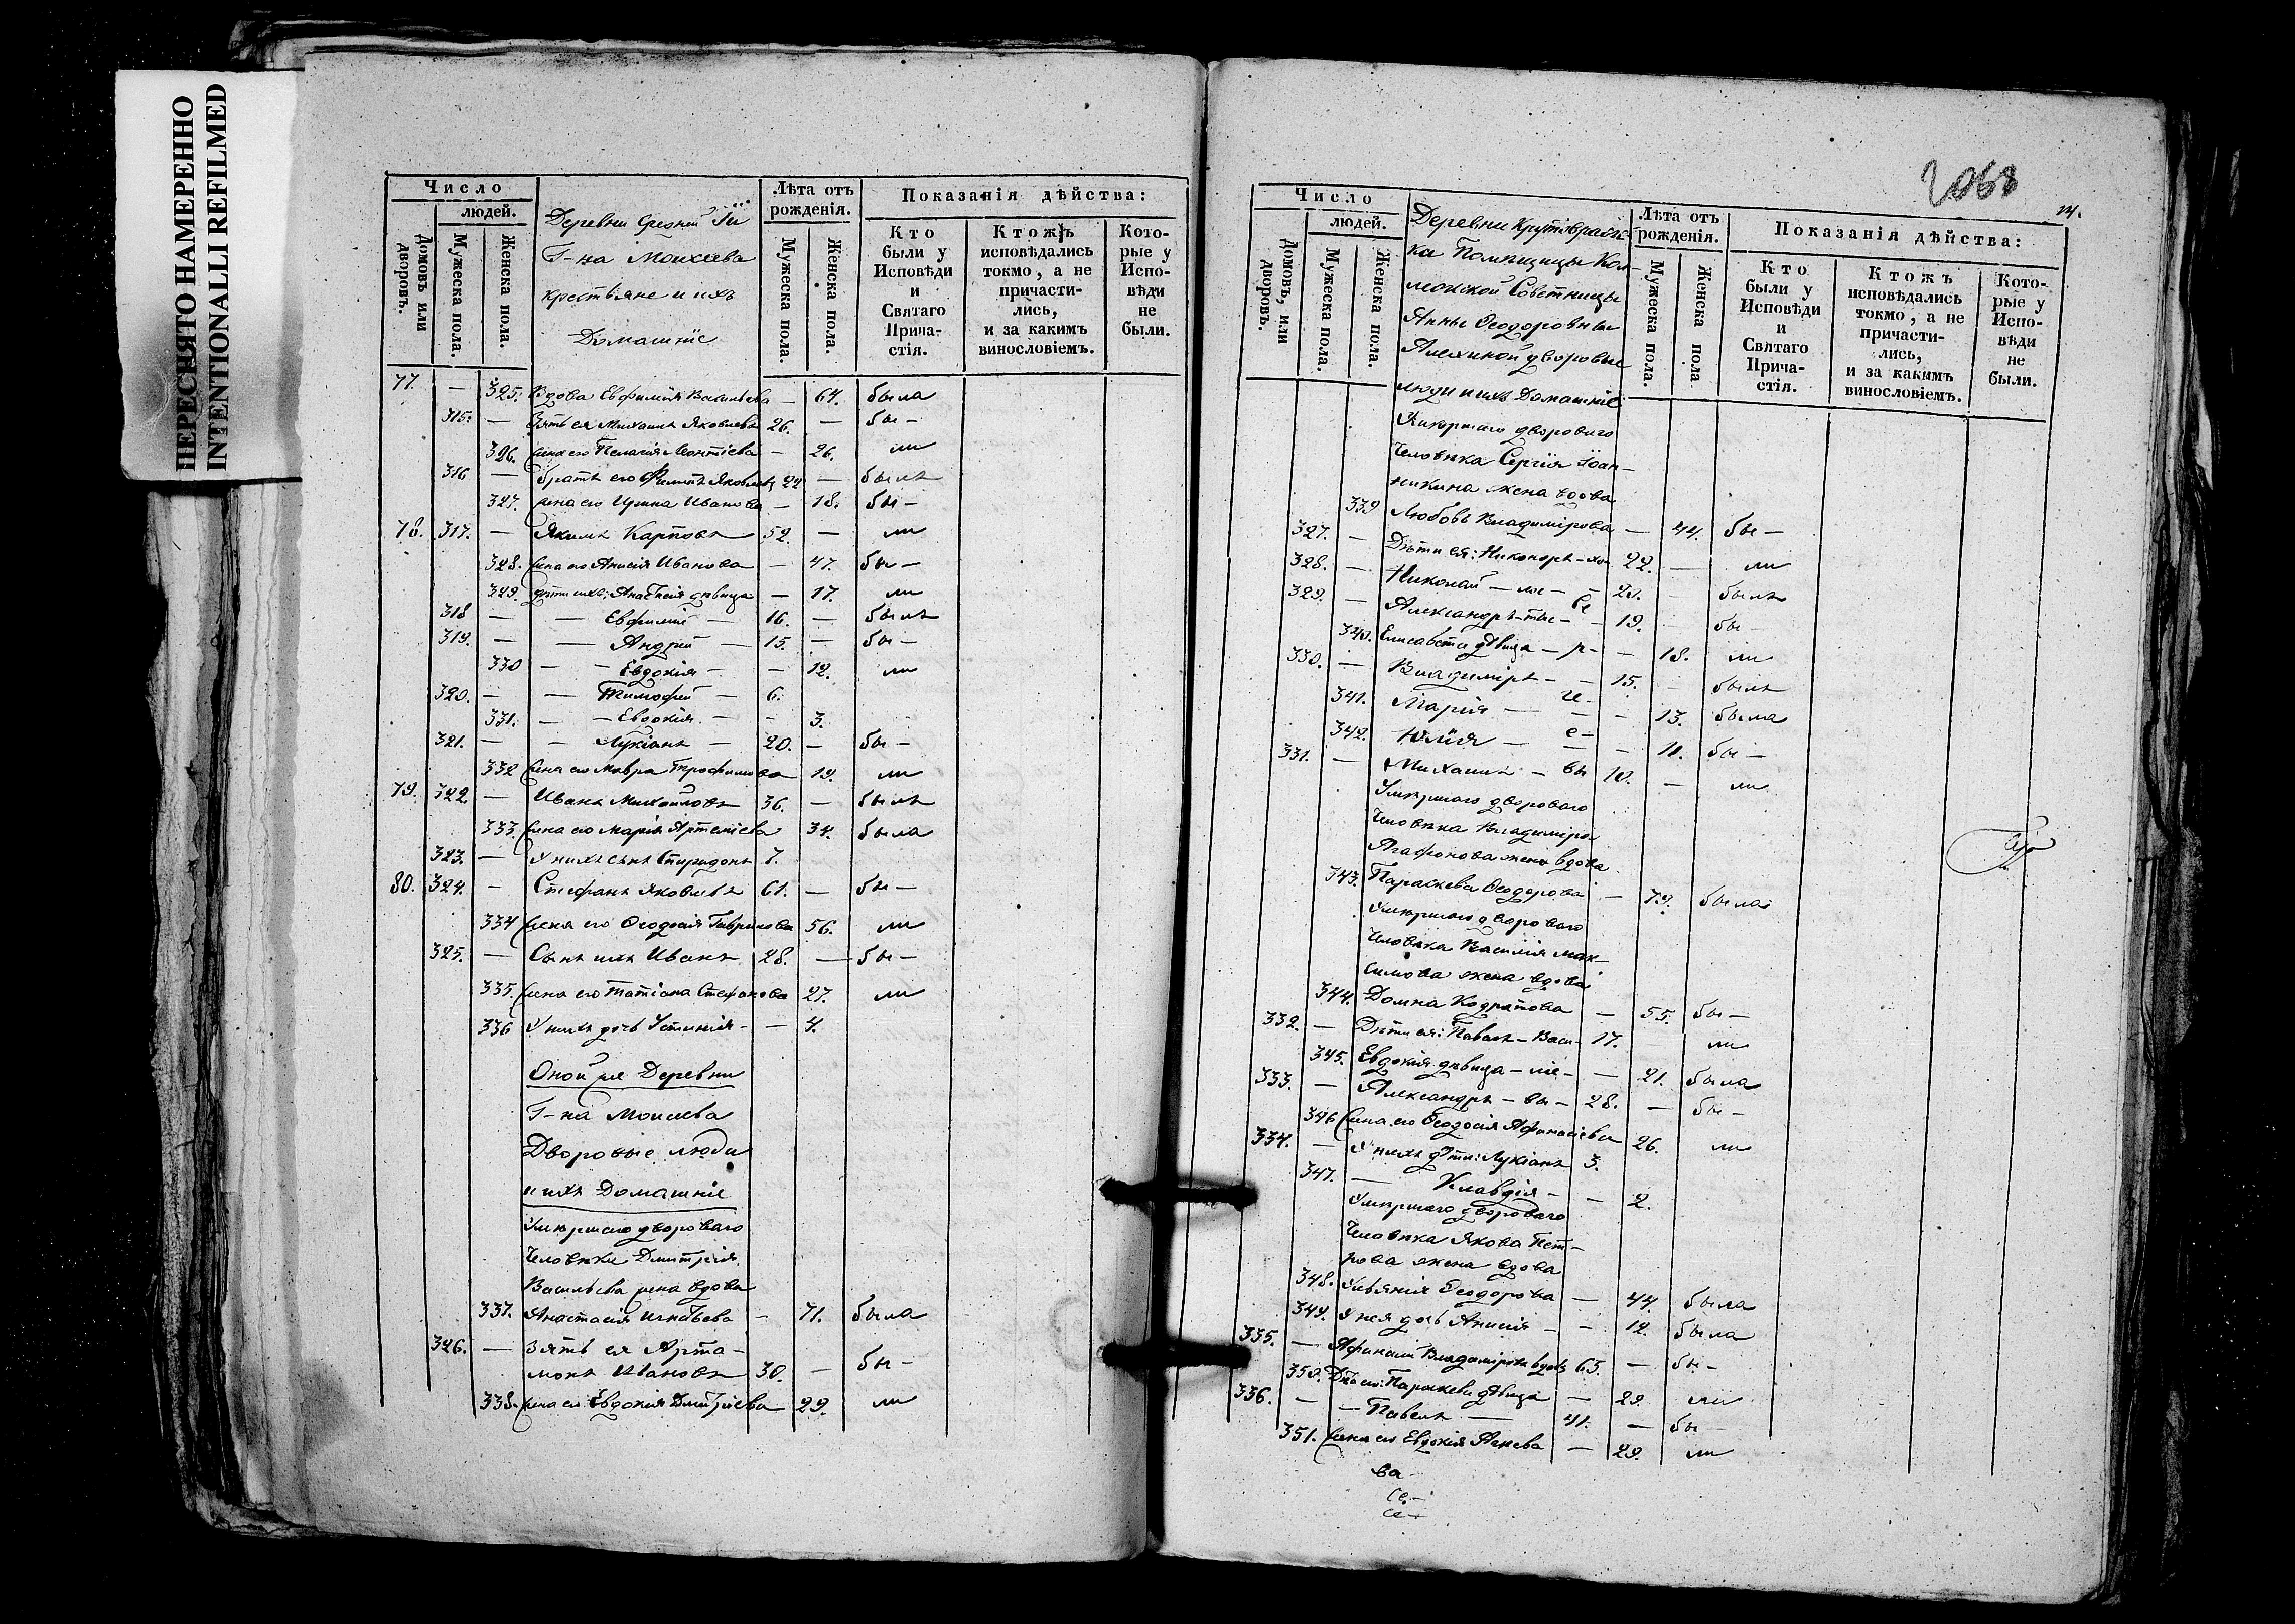 ПЕРЕСНЯТО НАМЕРЕННО
INTENTIONALLI REFILMED
Число
людей.
Домовъ или дворовъ.
Мужеска пола.
Женска пола.
Деревни Средней
Г-на Моисеева
крестьяне и ихъ
Домашніе
Лѣта отъ рожденія.
Мужеска пола.
Женска пола.
Показанія дѣйства:
Кто были у Исповѣди и Святаго Прича-стія.
Ктожъ исповѣдались токмо, а не причасти-лись, и за какимъ винословіемъ.
Кото-рые у Испо-вѣди не были.
77. — 325. Вдова Евфимія Васильева — 64. была
315. — Зять ея Михаилъ Яковлевъ 26. — бы —
326. Жена его Пелагія Леонтіева — 26. ли
316 — братъ его Филипъ Яковлевъ 22 — былъ
327. Жена его Ирина Иванова — 18. бы —
78. 317. — Якимъ Карповъ 52. — ли
328. Жена его Анисія Иванова — 47. бы —
329. Дѣти ихъ: Анастасія дѣвица — 17. ли
318 — — Евфимій — 16. — былъ
319. — — Андрей — 15. — бы —
330 — — Евдокія — — 12. ли
320. — — Тимофей — 6.
331. — — Евдокія — — 3.
321. — — Лукіанъ — 20. — бы —
332 Жена его Мавра Трофимова 19. ли
79. 322. — Иванъ Михайловъ 36. — былъ
333. Жена его Марія Артеміева 34. была
323. — У нихъ сынъ Спиридонъ 7.
80. 324. — Стефанъ Яковлевъ 61. — бы —
334 Жена его Ѳеодосія Гаврилова 56. ли
325. — Сынъ ихъ Иванъ 28. — бы —
335. Жена его Татіана Стефанова 27. ли
336 У нихъ дочь Устинія — — 4.
Оной же Деревни
Г-на Моисеева
Дворовые люди
и ихъ Домашніе
Умершаго двороваго
Человѣка Дмитрія
Васильева жена вдова
337. Анастасія Игнатьева — 71. была
326. — Зять ея Арта-
монъ Ивановъ 30. — бы —
338. Жена его Евдокія Дмитріева 29. ли
2068
14.
Число
людей.
Домовъ, или дворовъ.
Мужеска пола.
Женска пола.
Деревни Крутовраж-
ка Помѣщицы Кол-
лежской Совѣтницы
Анны Ѳеодоровны
Алехиной дворовые
люди и ихъ Домашніе
Лѣта отъ рожденія.
Мужеска пола.
Женска пола
Показанія дѣйства:
Кто были у Исповѣди и Святаго Прича-стія.
Ктожъ исповѣдались токмо, а не причасти-лись, и за какимъ винословіемъ.
Кото-рые у Испо-вѣди не были.
Умершаго двороваго
Человѣка Сергія Іоан-
никина жена вдова
339 Любовь Владимірова — 44. бы —
327. — Дѣти ея: Никоноръ — 22. — ли
328. — Николай — 20. — былъ
329. — Александръ — 19. — бы —
340. Елисавета дѣвица — р — — 18. ли
330. — Владиміръ — — 15. — былъ
341. Марія — — — 13. была
342. Юлія — е — — — 11. бы —
331. — Михаилъ — вы 10. — ли
Умершаго двороваго
Человѣка Владиміра
Агафонова жена вдова
343. Параскева Ѳеодорова — 70. была
Умершаго двороваго
Человѣка Василія Мак-
симова жена вдова
344. Домна Кодратова — 55. бы —
332. — Дѣти ея: Павелъ — Васи — 17. — ли
345. Евдокія дѣвица — лье — — 21. была
333. — Александръ — вы — 28. — бы —
346 Жена его Ѳеодосія Афанасіева 26. ли
334. — У нихъ дѣти: Лукіанъ 3.
347. — Клавдія — — 2.
Умершаго двороваго
Человѣка Якова Пет-
рова жена вдова
348. Ульянія Ѳеодорова — 44. была
349. У нея дочь Анисія — — 12. была
335. — Афанасій Владиміровъ вдовъ 63. — бы —
350. Дѣти его: Параскева дѣвица — 29. ли
336. — — Павелъ — 41. — бы —
351. Жена его Евдокія — 29. ли
ва
се —
се —